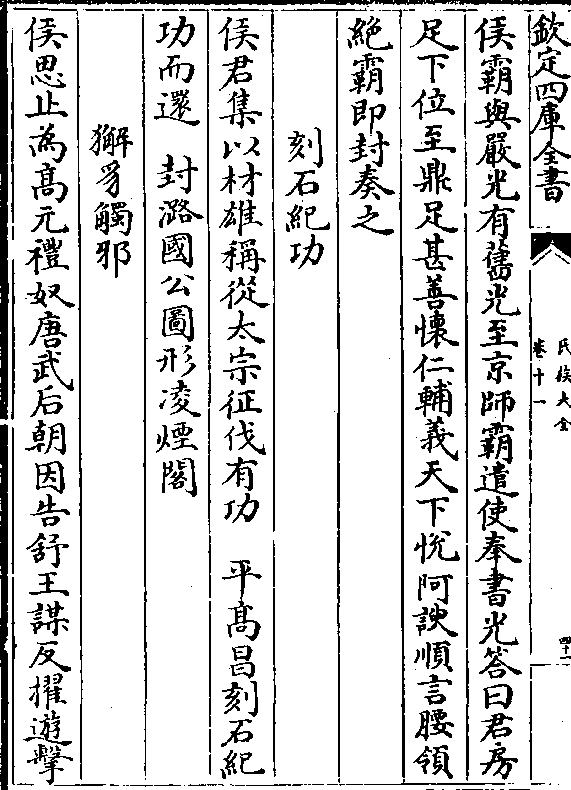 欽定四庫全書
氏族大全
卷十一
四十一
侯霸與嚴光有舊光至京師霸遣使奉書光答曰君房
足下位至鼎足甚善懷仁輔義天下悅阿諛順言腰領
絕霸即封奏之
刻石紀功
侯君集以材雄稱從太宗征伐有功　平髙昌刻石紀
功而還　封潞國公圖形凌煙閣
獬豸觸邪
侯思止為髙元禮奴唐武后朝因告舒王謀反擢遊擊